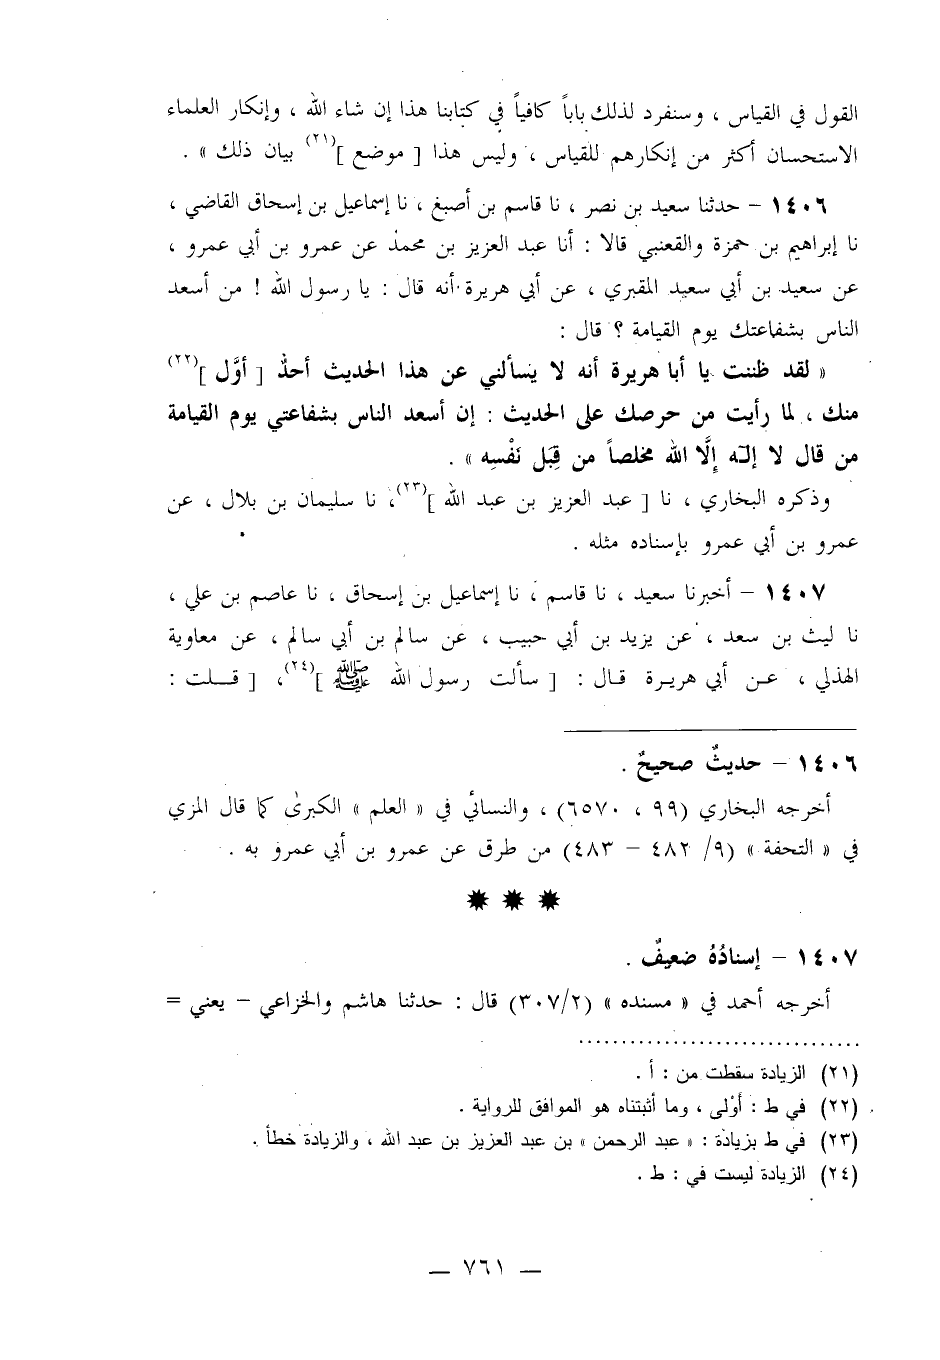 القول في القياس ، وسنفرد لذلك باباً كافياً في كتابنا هذا إن شاء الله ، وإنكار العلماء
الاستحسان أكثر من إنكارهم للقياس ، وليس هذا [ موضع ](٢١) بيان ذلك » .
١٤٠٦ – حدثنا سعيد بن نصر ، نا قاسم بن أصبغ ، نا إسماعيل بن إسحاق القاضي ،
نا إبراهيم بن حمزة والقعنبي قالا : أنا عبد العزيز بن محمد عن عمرو بن أبي عمرو ،
عن سعيد بن أبي سعيد المقبري ، عن أبي هريرة أنه قال : يا رسول الله ! من أسعد
الناس بشفاعتك يوم القيامة ؟ قال :
« لقد ظننت يا أبا هريرة أنه لا يسألني عن هذا الحديث أحدٌ [ أوَّل ](٢٢)
منك ، لما رأيت من حرصك على الحديث : إن أسعد الناس بشفاعتي يوم القيامة
من قال لا إله إلَّا الله مخلصاً من قِبَل نَفْسِه » .
وذكره البخاري ، نا [ عبد العزيز بن عبد الله ](٢٣)، نا سليمان بن بلال ، عن
عمرو بن أبي عمرو بإسناده مثله .
١٤٠٧ – أخبرنا سعيد ، نا قاسم ، نا إسماعيل بن إسحاق ، نا عاصم بن علي ،
نا ليث بن سعد ، عن يزيد بن أبي حبيب ، عن سالم بن أبي سالم ، عن معاوية
الهذلي ، عن أبي هريرة قال : [ سألت رسول الله ﷺ ](٢٤)، [ قلت :
١٤٠٦ – حديثٌ صحيحٌ .
أخرجه البخاري (٩٩ ، ٦٥٧٠) ، والنسائي في « العلم » الكبرىٰ كما قال المزي
في « التحفة » (٩/ ٤٨٢ – ٤٨٣) من طرق عن عمرو بن أبي عمرو به .
١٤٠٧ – إسنادُهُ ضعيفٌ .
أخرجه أحمد في « مسنده » (٣٠٧/٢) قال : حدثنا هاشم والخزاعي – يعني =
(٢١) الزيادة سقطت من : أ .
(٢٢) في ط : أوْلى ، وما أثبتناه هو الموافق للرواية .
(٢٣) في ط بزيادة : « عبد الرحمن » بن عبد العزيز بن عبد الله ، والزيادة خطأ .
(٢٤) الزيادة ليست في : ط .
— ٧٦١ —